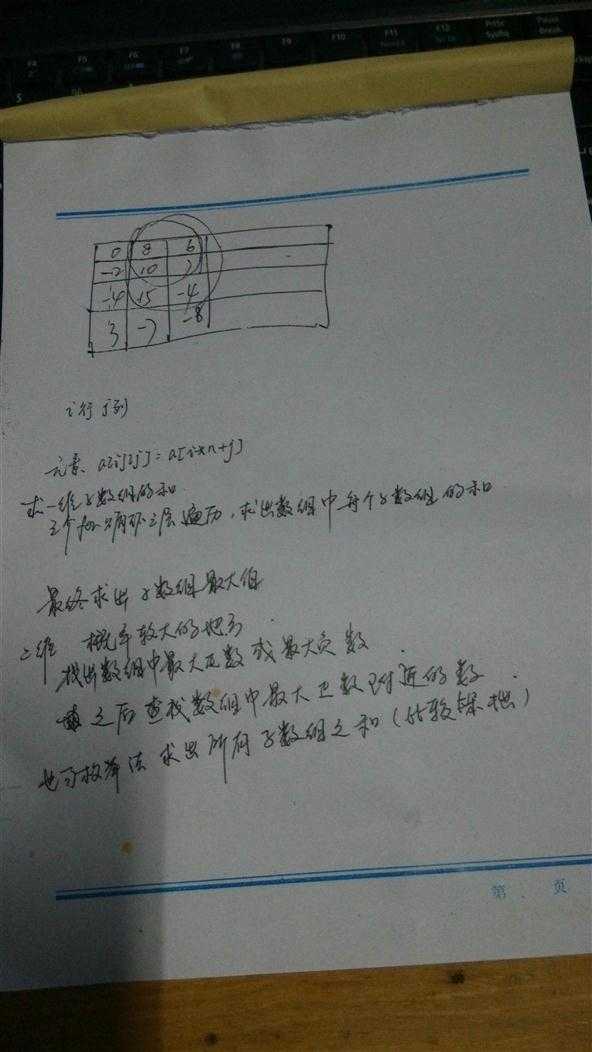 F4 F5 F6 F7 F8 F9 F10 F11 F12 PrtSc SysRq Pause Break
0 8 6
-2 10 2
-4 15 -4
3 -7 -8
i行j列
元素 a[i][j]=a[i×n+j]
求一维子数组的和
三个for循环三层遍历,求出数组中每个子数组的和
最终求出子数组最大值
二维 概率较大的地方
找出数组中最大正数或最大负数
之后查找数组中最大正数附近的数
也可枚举法求出所有子数组之和(比较笨拙)
第 页